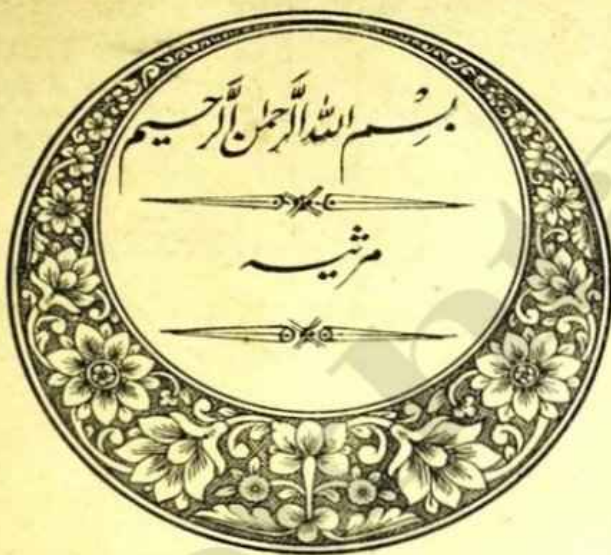 بِسْمِ اللہِ الرَّحمٰنِ الرَّحیم
مرثیہ